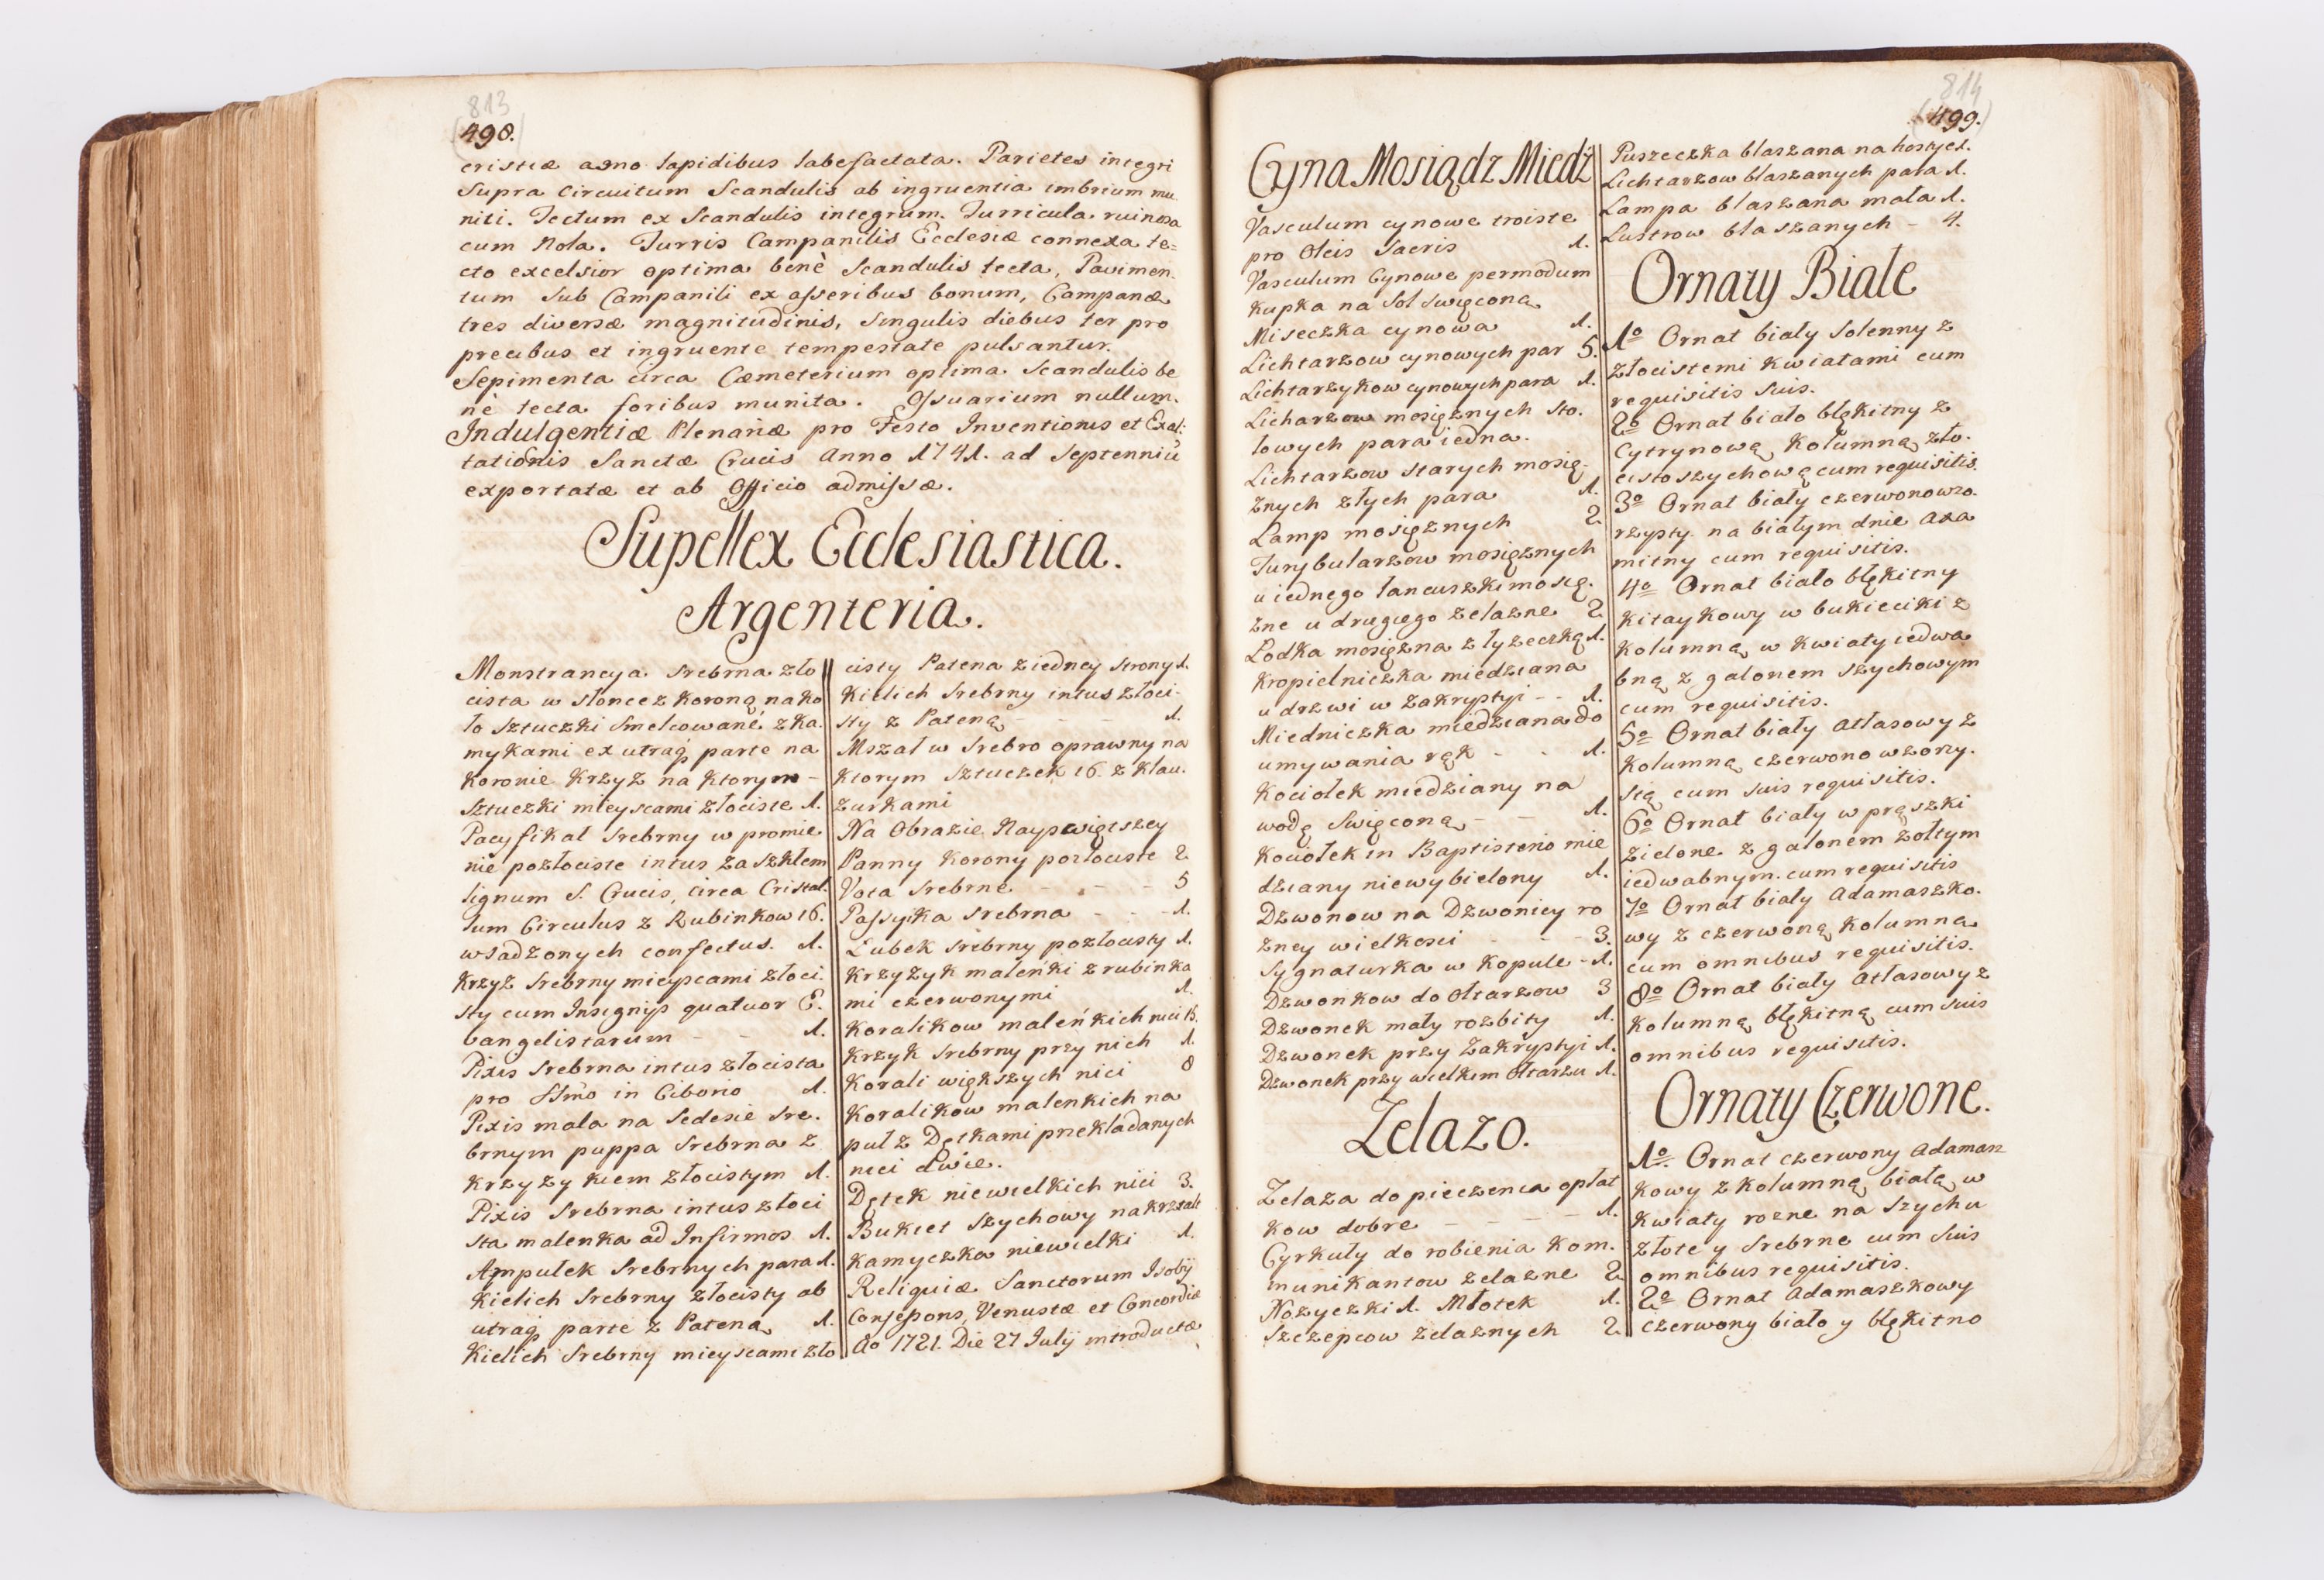 813
498.
cristiæ agno lapidibus labefactata. Parietes integri
Supra Circuitum Scandulis ab ingruentia imbrium mu
niti. Tectum ex Scandulis integrum. Turricula ruinosa
cum Nola. Turris Campanilis Ecclesiæ connexa te=
cto excelsior optima benè Scandulis tecta, Pavimen
tum Sub Campanili ex asseribus bonum, Campanæ
tres diversæ magnitudinis, singulis diebus ter pro
precibus et ingruente tempestate pulsantur.
Sepimenta circa Cæmeterium optima Scandulis be
nè tecta foribus munita. Ossuarium nullum.
Indulgentiæ Plenariæ pro Festo Inventionis et Exal:
tationis Sanctæ Crucis Anno 1741. ad Septenniũ
exportatæ et ab Officio admissæ.
Supellex Ecclesiastica.
Argenteria.
Monstrancya srebrna zło
cista w słonce z Koroną na ko
ło Sztuczki Smelcowané z ka.
mykami ex utraq parte na
Koronie Krzyz na Ktorym -
Sztuczki mieyscami złociste 1.
Pacyfikał Srebrny w promie
nie pozłociste intus za szkłem
lignum S. Crucis, circa Cristal.
lum Circulus z Rubinkow 16.
wsadzonych confectus. 1.
Krzyz Srebrny mieyscami złoci.
sty cum Insignijs quatuor E.
vangelistarum - - 1.
Pixis Srebrna intus złocista
pro SSmo in Ciborio 1.
Pixis mala na Sedesie Sre.
brnym puppa Srebrna z
krzyzykiem złocistym 1.
Pixis Srebrna intus złoci
sta malenka ad Infirmos 1.
Ampułek Srebrnych para 1.
Kielich Srebrny złocisty ab
utraq parte z Pateną 1.
Kielich Srebrny mieyscami zło
cisty Patena z iedney strony 1.
Kielich Srebrny intus złoci-
sty z Pateną - - - 1.
Mszał w Srebro oprawny na
Ktorym Sztuczek 16. z Klau.
zurkami
Na Obrazie Nayswiętszey
Panny Korony pozłociste 2.
Vota Srebrne - - - 5
Passyika srebrna - - - 1.
Łubek srebrny pozłocisty 1.
Krzyzyk maleńki z rubinka
mi czerwonymi 1.
Koralikow maleńkich nici 13.
Krzyk Srebrny przy nich 1.
Korali większych nici 8
Koralikow malenkich na
puł z Dętkami przekładanych
nici dwie.
Dętek niewielkich nici 3.
Bukiet Szychowy na krzałt
Kamyczka niewielki 1.
Reliquiæ Sanctorum
Venustæ et Concordiæ
Ao 1721. Die 27 Julij introductæ
814
499.
Cyna Mosiądz Miedź
Vasculum cynowe troiste
pro Oleis Sacris 1.
Vasculum Cynowe permodum
Kupka na Sol swięconą
Miseczka cynowa 1.
Lichtarzow cynowych par 5.
Lichtarzykow cynowych para 1.
Licharzow mosięznych sto.
łowych para iedna.
Lichtarzow starych mosię-
znych złych para 1.
Lamp mosięznych 2
Turybularzow mosięznych
u iednego łancuszki mosię.
zne u drugiego zelazne 2.
Lodka mosięzna z łyzeczką 1.
Kropielniczka miedziana
u drzwi w Zakrystyi - - 1.
Miedniczka miedziana do
umywania rąk - - 1.
Kociołek miedziany na
wodę Swięconą - - 1.
Kociołek in Baptisterio mie
dziany niewybielony 1.
Dzwonow na Dzwonicy ro
zney wielkosci - - - 3.
Sygnaturka w Kopule - 1.
Dzwonkow do Ołtarzow 3
Dzwonek mały rozbity 1.
Dzwonek przy Zakrystyi 1.
Dzwonek przy wielkim Ołtarzu 1.
Zelazo.
Zelaza do pieczenia opłat
kow dobre - - - - 1.
Cyrkuły do robienia Kom.
munikantow zelazne 2.
Nozyczki 1. Młotek 1.
Szczepcow zelaznych 2.
Puszeczka blaszana na hostye 1.
Lichtarzow blaszanych para 1.
Lampa blaszana mała 1.
Lustrow blaszanych - 4.
Ornaty Białe
1o Ornat biały Solenny z
złocistemi Kwiatami cum
requisitis suis.
2o Ornat biało błękitny z
Cytrynową Kolumną zło.
cistoszychową cum requisitis.
3o Ornat biały czerwonowzo.
rzysty na białym dnie axa
mitny cum requisitis.
4o Ornat biało błękitny
Kitaykowy w bukieciki z
Kolumną w Kwiaty iedwa
bną z galonem szychowym
cum requisitis.
5o Ornat biały Atłasowy z
Kolumną czerwono wzorzy.
stą cum suis requisitis.
6o Ornat biały w prąszki
zielone z galonem zołtym
iedwabnym. cum requisitis
7o Ornat biały Adamaszko.
wy z czerwoną Kolumną
cum omnibus requisitis.
8o Ornat biały Atłasowy z
Kolumną błękitną cum suis
omnibus requisitis.
Ornaty Czerwone.
1o. Ornat czerwony Adamasz
kowy z kolumną białą w
Kwiaty rozne na Szychu
złote y Srebrne cum suis
omnibus requisitis.
2o Ornat Adamaszkowy
czerwony biało y błękitno